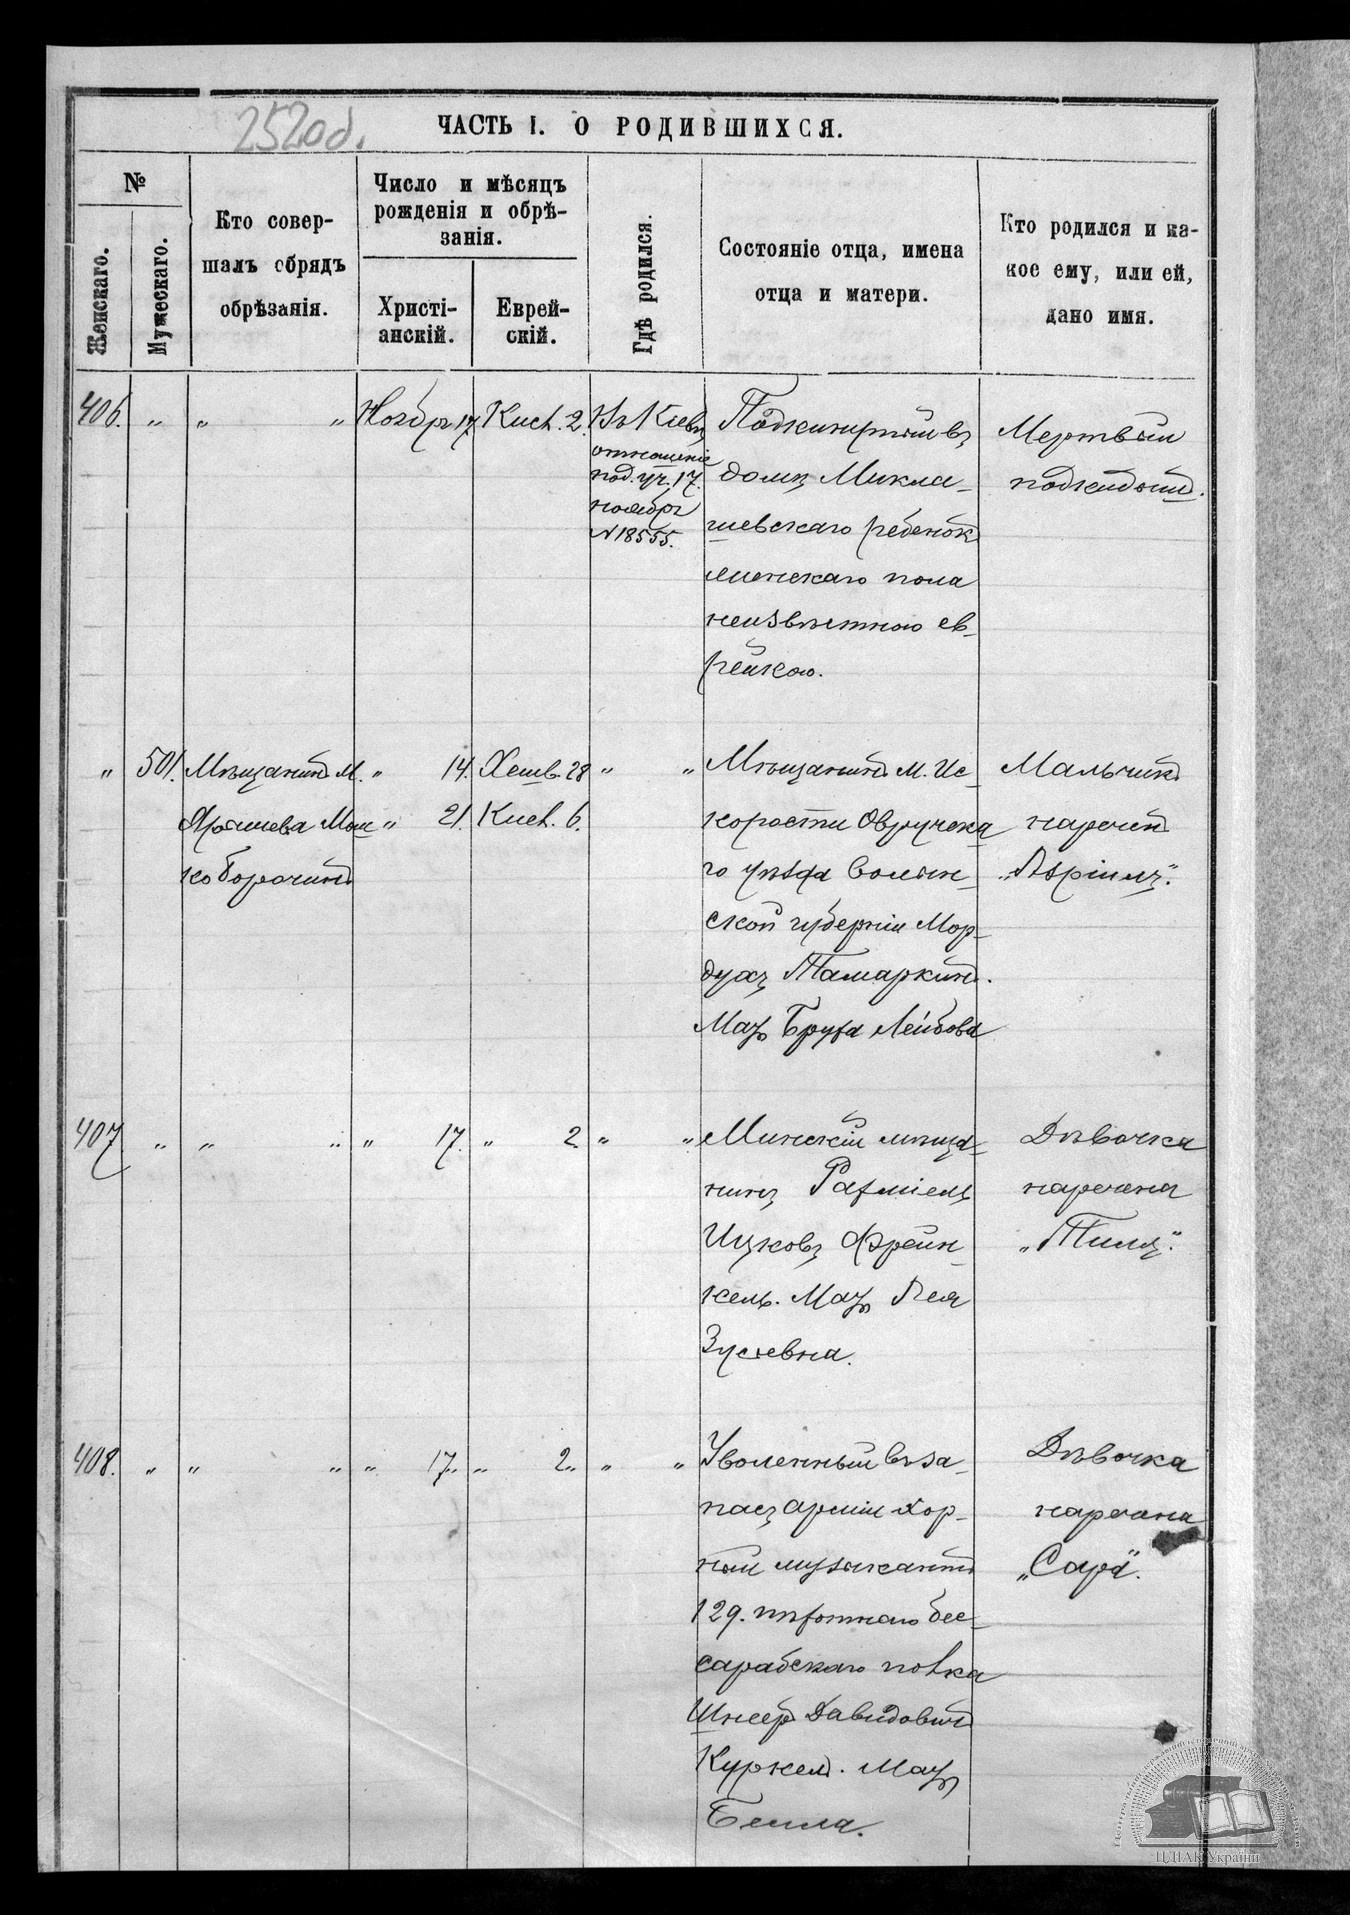 252 об.
ЧАСТЬ I. О РОДИВШИХСЯ.
№
Женскаго.
Мужескаго.
Кто совер-
шалъ обрядъ
обрѣзанія.
Число и мѣсяцъ
рожденія и обрѣ-
занія.
Христі-
анскій.
Еврей-
скій.
Гдѣ родился.
Состояніе отца, имена
отца и матери.
Кто родился и ка-
кое ему, или ей,
дано имя.
406. " " " Ноябрь 17. Кисл. 2. Въ Кіевѣ
отношеніе
под. уч. 17.
ноября
№ 18555.
Подкинутый въ
домѣ Микла-
шевскаго ребенокъ
женскаго пола
неизвѣстною ев-
рейкою.
Мертвый
подкидышъ.
" 501. Мѣщанинъ М.
Ярошева Мош
ко Борочинъ
" 14. Хешв. 28
" 21. Кисл. 6.
" "
Мѣщанинъ М. Ис-
корости Овручска
го уѣзда Волын-
ской губерніи Мор-
духъ Тамаркинъ.
Мать Бруха Лейбова
Мальчикъ
нареченъ
"Азріилъ".
407 " " " " 17. " 2 " "
Минскій мѣща-
нинъ Рахміель
Ицковъ Фрейн-
кель. Мать Лея
Зусевна.
Дѣвочка
наречена
408. " " " " 17. " 2. " "
Уволенный въ за-
пасъ арміи хор-
ный музыкантъ
129. пѣхотнаго бес-
сарабскаго полка
Шнеер Давидовичъ
Мать
Бейла.
Дѣвочка
наречена
"Сара".
ЦДІАК України